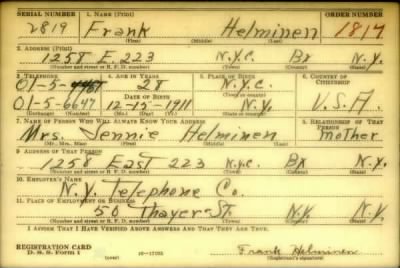 SERIAL NUMBER 1. NAME (Print) ORDER NUMBER
2819 Frank Helminen 1814
(First) (Middle) (Last)
2. ADDRESS (Print)
1258 E. 223 N.Y.C. Bx N.Y.
(Number and street or R. F. D. number) (Town) (County) (State)
3. TELEPHONE 4. AGE IN YEARS 5. PLACE OF BIRTH 6. COUNTRY OF CITIZENSHIP
01-5- 28 N.Y.C.
DATE OF BIRTH (Town or county)
01-5-6647 12-15-1911 N.Y. U.S.A.
(Exchange) (Number) (Mo.) (Day) (Yr.) (State or country)
7. NAME OF PERSON WHO WILL ALWAYS KNOW YOUR ADDRESS 8. RELATIONSHIP OF THAT PERSON
Mrs. Jennie Helminen Mother
(Mr., Mrs., Miss) (First) (Middle) (Last)
9. ADDRESS OF THAT PERSON
1258 EAST 223 N.Y.C. BX N.Y.
(Number and street or R. F. D. number) (Town) (County) (State)
10. EMPLOYER'S NAME
N.Y. Telephone Co.
11. PLACE OF EMPLOYMENT OR BUSINESS
50 Thayer St. N.Y. N.Y.
(Number and street or R. F. D. number) (Town) (County) (State)
I AFFIRM THAT I HAVE VERIFIED ABOVE ANSWERS AND THAT THEY ARE TRUE.
REGISTRATION CARD
D. S. S. Form 1 (over) Frank Helminen
(Registrant's signature)